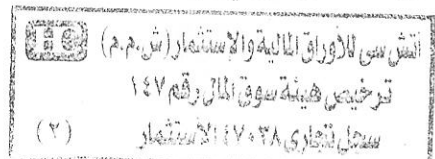 اتش سى للأوراق المالية والإستثمار (ش.م.م) HC
ترخيص هيئة سوق المال رقم ١٤٧
سجل تجارى ٤٧٠٣٨ الاستثمار (٢)